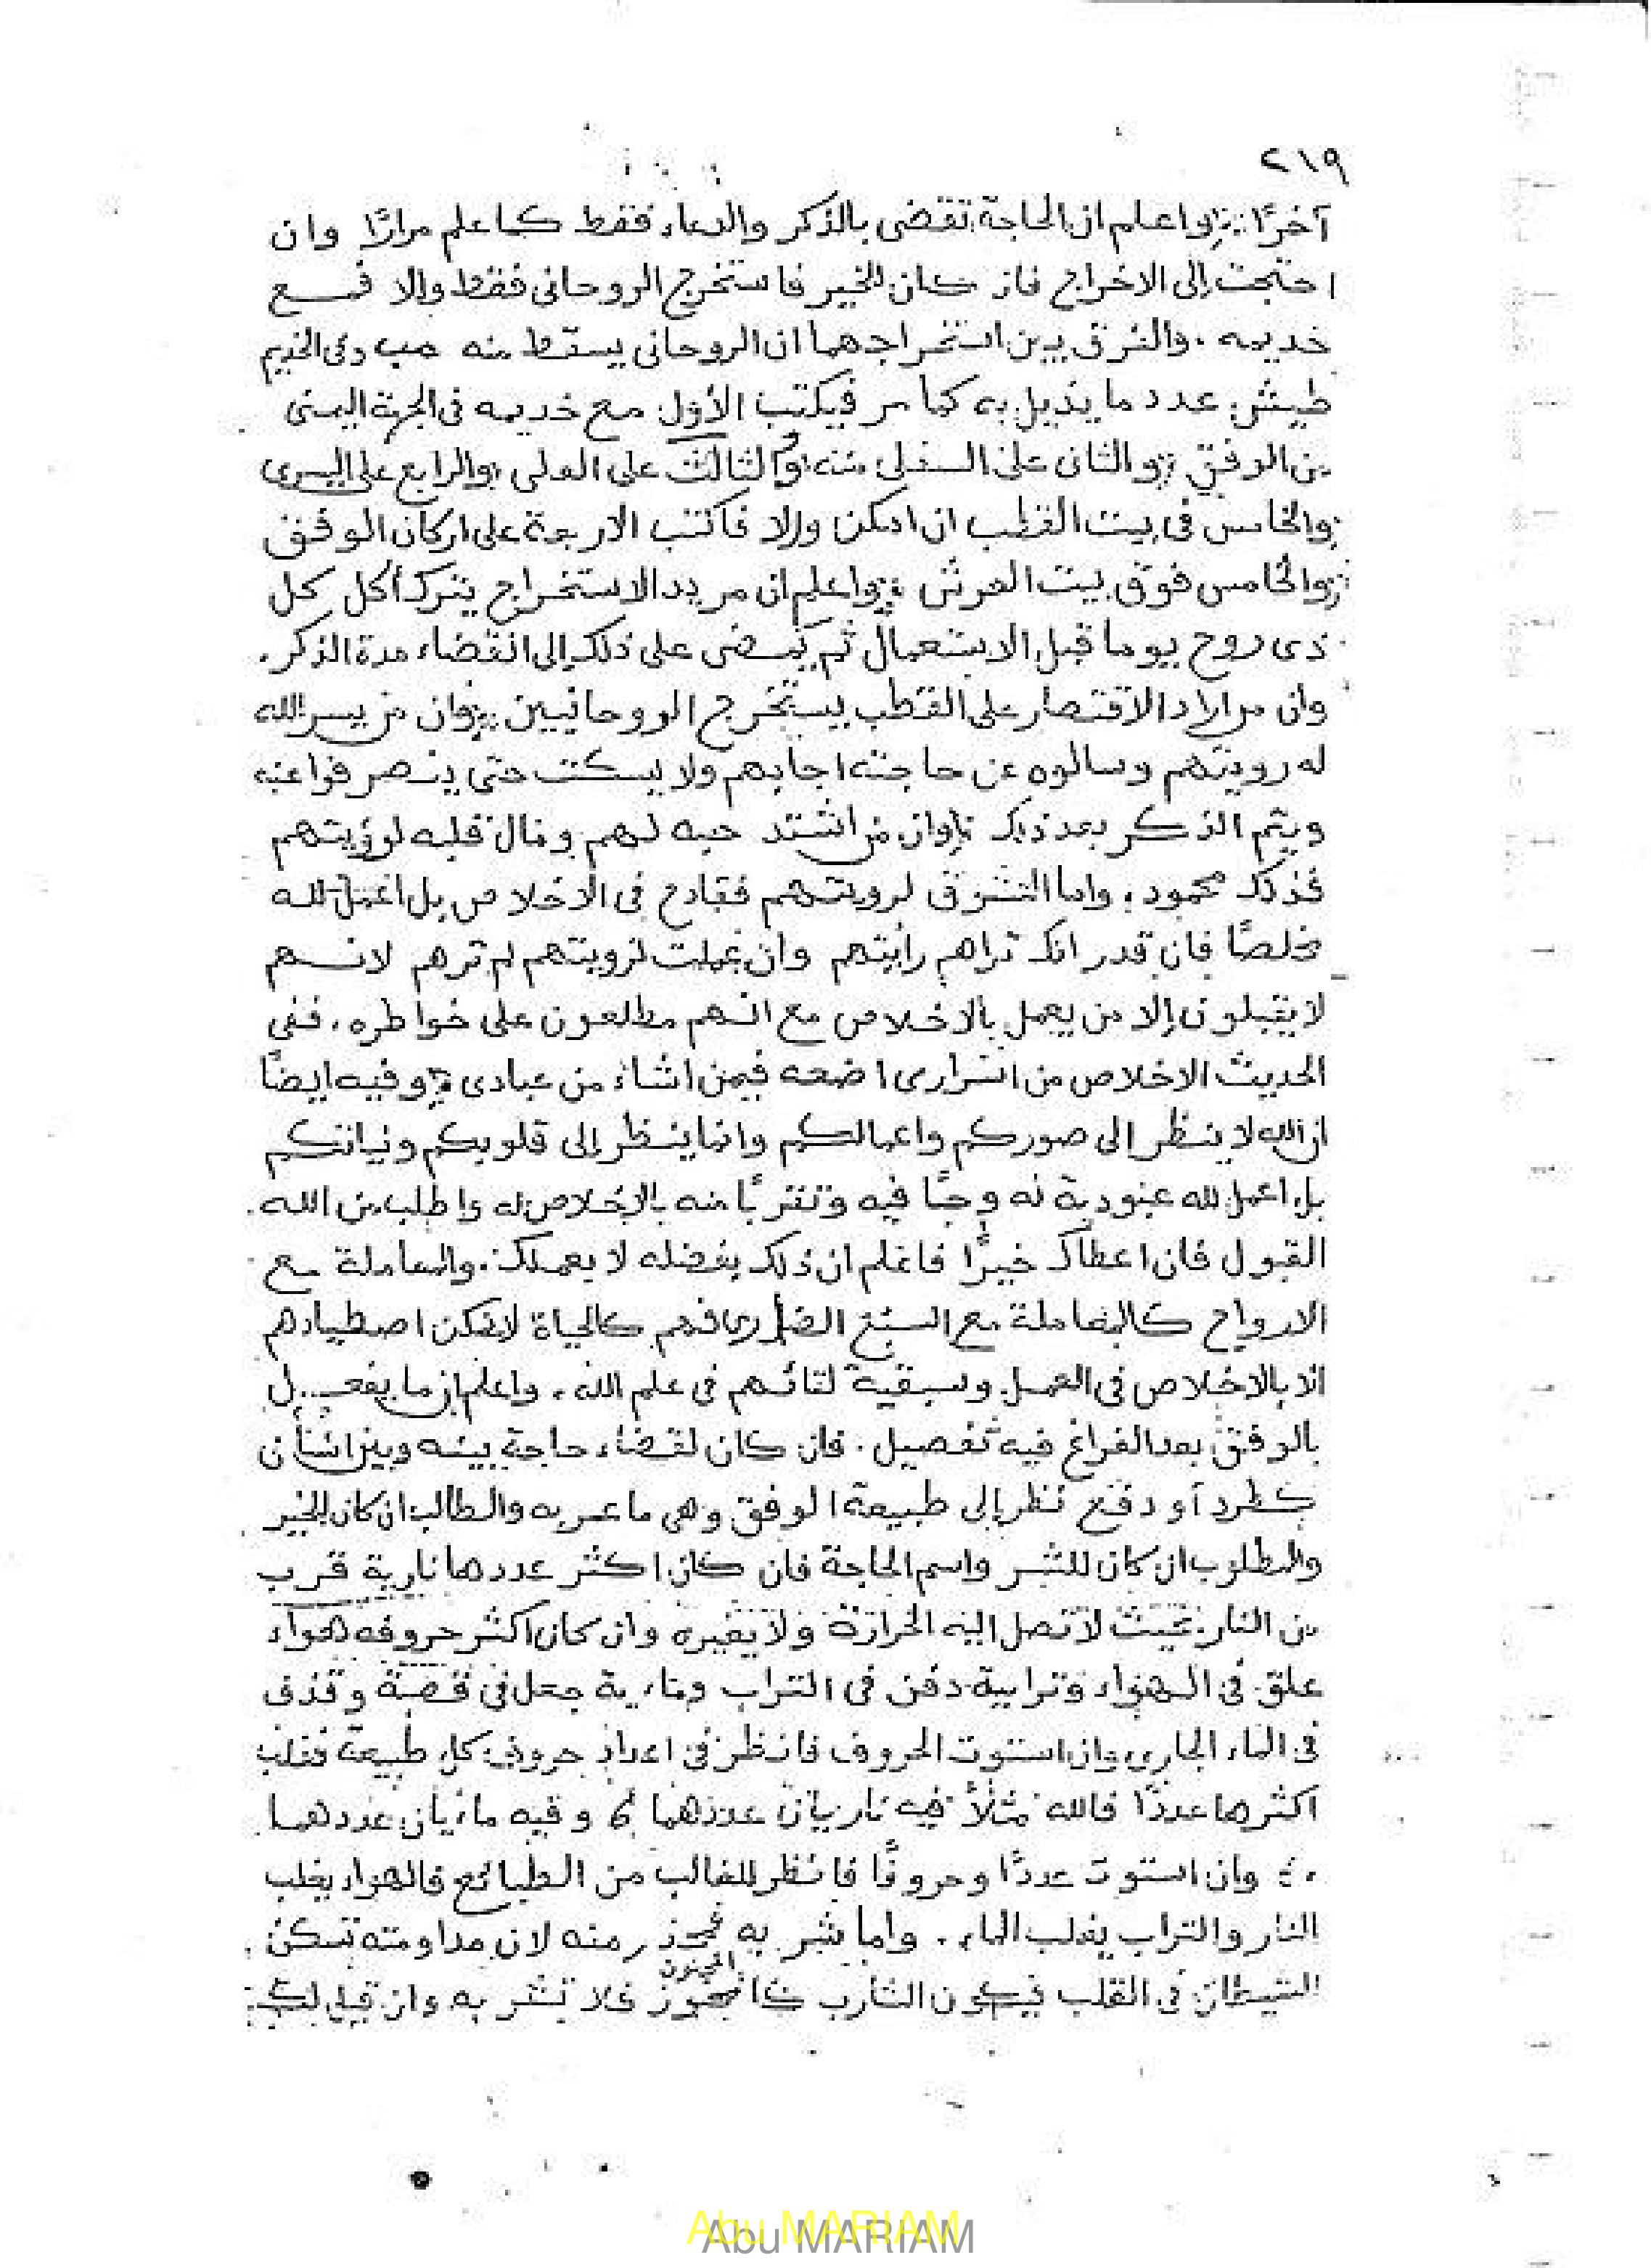 ٢١٩
آخرًا واعلم ان الحاجة تقضى بالذكر والدعاء فقط كما علم مرارًا وان
احتجت إلى الاخراج فان كان للخير فاستخرج الروحانى فقط وإلا فمع
خديمه . والفرق بين استخراجهما ان الروحانى يسقط منه وفى الخديم
طيش عدد ما يذيل به كما مر فيكتب الأول مع خديمه فى الجهة اليمنى
من الوفق والثان على السفلى منه والثالث على العولى والرابع على اليسرى
والخامس فى بيت القطب ان امكن وإلا فاكتب الاربعة على اركان الوفق
والخامس فوق بيت العرش واعلم ان مريد الاستخراج يترك أكل كل
ذى روح يوما قبل الاستعمال ثم يمضى على ذلك إلى انقضاء مدة الذكر .
وان من اراد الاقتصار على القطب يستخرج الروحانيين وان من يسر الله
له رويتهم وسالوه عن حاجته اجابهم ولا يسكت حتى ينصرفوا عنه
ويتم الذكر بعد ذلك وان من اشتد حبه لهم ومال قلبه لرؤيتهم
فذلك محمود ، واما التشوق لرويتهم فقادح فى الاخلاص بل اعمل لله
مخلصًا فان قدر انك تراهم رأيتهم وان عملت لرويتهم لم ترهم لانهم
لا يقبلون إلا من يعمل بالاخلاص مع انهم مطلعون على خواطره . ففى
الحديث الاخلاص من اسرارى اضعه فيمن اشاء من عبادى وفيه ايضًا
ان الله لا ينظر الى صوركم واعمالكم وانما ينظر إلى قلوبكم ونياتكم
بل اعمل لله عبودية له وحبًا فيه وتقربًا منه بالاخلاص له واطلب من الله
القبول فان اعطاك خيرًا فاعلم ان ذلك بفضله لا بعملك . والمعاملة مع
الارواح كالمعاملة مع السبع الضارى فهم كالحياة لا يمكن اصطيادهم
الا بالاخلاص فى العمل وسبقية لقائهم فى علم الله . واعلم ان ما يفعل
بالوفق بعد الفراغ فيه تفصيل . فان كان لقضاء حاجة بينه وبين انسان
كطرد أو دفع نظر إلى طبيعة الوفق وهى ما عمر به والطالب ان كان للخير
والمطلوب ان كان للشر واسم الحاجة فان كان اكثر عددها نارية قرب
من النار بحيث لا تصل اليه الحرارة ولا تغيره وان كان اكثر حروفه هواء
علق فى الهواء وترابية دفن فى التراب ومايية جعل فى قصبة وقذف
فى الماء الجارى وان استوت الحروف فانظر فى اعداد حروف كل طبيعة فغلب
اكثرها عددًا فالله مثلًا فيه ناريان عددهما ٦ وفيه مائيان عددهما
٦٠ وان استوت عددًا وحروفًا فانظر للغالب من الطبائع فالهواء يغلب
النار والتراب يغلب الماء . واما شربه فحذر منه لان مداومته تسكن
الشيطان فى القلب فيكون الشارب كالمجنون فلا تشر به وان قيل لك
Abu MARIAM
Abu MARIAM